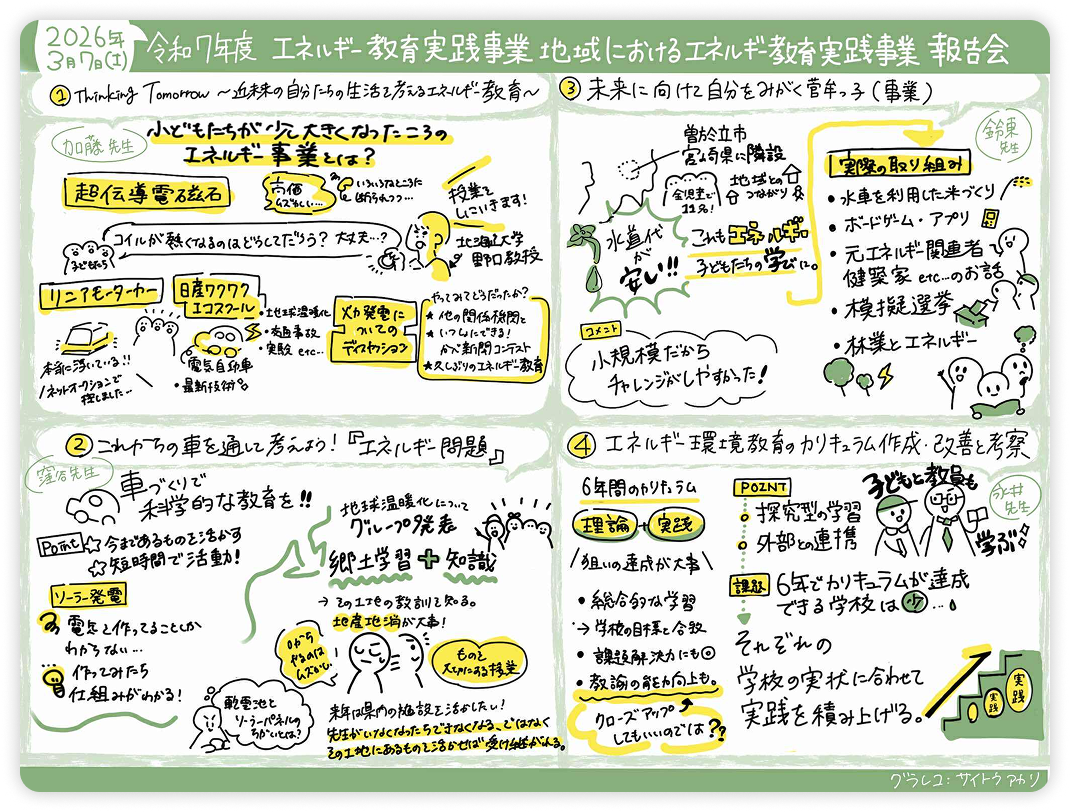 2026年
3月7日(土)
令和7年度 エネルギー教育実践事業 地域におけるエネルギー教育実践事業 報告会
① Thinking Tomorrow ～近未来の自分たちの生活を考えるエネルギー教育～
加藤先生
子どもたちが少し大きくなったころの
エネルギー事業とは?
超伝導電磁石
高価
ムズかしい…
いろいろなところに
断られつつ…
授業を
しにいきます!
北海道大学
野口教授
コイルが熱くなるのはどうしてだろう? 大丈夫…?
子どもたち
リニアモーターカー
本当に浮いている!!
ネットオークションで
探しました…
日産ワクワク
エコスクール
電気自動車
・最新技術
・地球温暖化
・実験 etc…
火力発電に
ついての
ディスカッション
やってみてどうだったか?
★他の関係機関と
★いつんにできる!
かべ新聞コンテスト
★久しぶりのエネルギー教育
② これからの車を通して考えよう!『エネルギー問題』
窪谷先生
車づくりで
科学的な教育を!!
Point
☆今まであるものを活かす
☆短時間で活動!
ソーラー発電
電気を作ってることしか
わからない…
作ってみたら
仕組みがわかる!
乾電池と
ソーラーパネルの
ちがいとは?
地球温暖化について
グループ発表
郷土学習+知識
→その土地の教訓を知る。
地産地消が大事!
0から
やるのは
ムズかしい
ものを
大切にする授業
来年は県内の施設を活かしたい!
先生がいなくなったらできなくなる、ではなく
その土地にあるものを活かせば受け継がれる。
③ 未来に向けて自分をみがく菅牟っ子(事業)
鈴東
先生
曽於立市
宮崎県に隣設
全児童で
11名!
地域との
つながり
水道代
が
安い!!
これもエネルギー
子どもたちの学びに。
コメント
小規模だから
チャレンジがしやすかった!
実際の取り組み
・水車を利用した米づくり
・ボードゲーム・アプリ
・元エネルギー関連者
健築家 etc…のお話
・模擬選挙
・林業とエネルギー
④ エネルギー環境教育のカリキュラム作成・改善と考察
永井
先生
6年間のカリキュラム
理論+実践
狙いの達成が大事
・総合的な学習
→学校の目標と合致
・課題解決力にも◎
・教諭の能力向上も。
クローズアップ
してもいいのでは??
POINT
探究型の学習
外部との連携
子どもと教員も
学ぶ
課題
6年でカリキュラムが達成
できる学校は少…
それぞれの
学校の実状に合わせて
実践を積み上げる。
実践
実践
グラレコ:サイトウアカリ